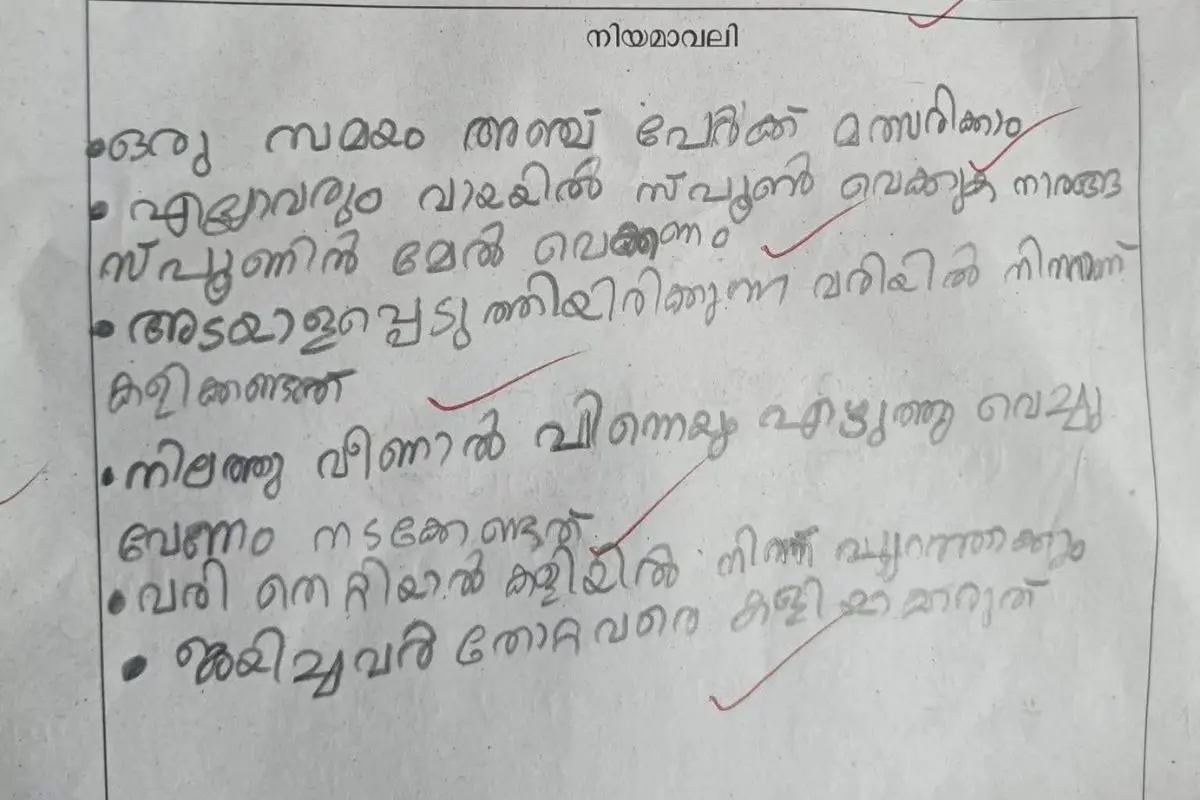 നിയമാവലി
•ഒരു സമയം അഞ്ച് പേർക്ക് മത്സരിക്കാം
• എല്ലാവരും വായയിൽ സ്പൂൺ വെക്കുക നാരങ്ങ
സ്പൂണിൻ മേൽ വെക്കണം
• അടയാളപ്പെടുത്തിയിരിക്കുന്ന വരിയിൽ നിന്നാണ്
കളിക്കണ്ടത്
• നിലത്തു വീണാൽ പിന്നെയും എഴുത്തു വെച്ചു
വേണം നടക്കേണ്ടത്
• വരി തെറ്റിയാൽ കളിയിൽ നിന്ന് പുറത്താക്കും
• ജയിച്ചവർ തോറ്റവരെ കളിയാക്കരുത്